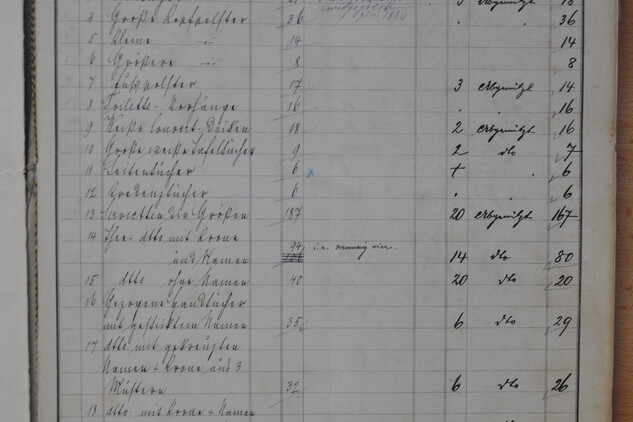 4 Große Kopfpolster 36 . . 36
5 kleine " 14 14
6 Größere " 8 8
7 Fußpolster 17 3 Abgenützt 14
8 Toilette-Vorhänge 16 . . 16
9 Weiße Couvert-Decken 18 2 Abgenützt 16
10 Große weiße Tafeltücher 9 2 dto 7
11 Seitentücher 6 † . 6
12 Kredenztücher 6 . . 6
13 Servietten div Größen 187 20 Abgenützt 167
14 Thee-dtto mit Krone
und Namen 94 i.e. neunzig vier. 14 dto 80
15 dtto ohne Namen 40 20 dto 20
16 Gezogene Handtücher
mit gestickten Namen 35 6 dto 29
17 dtto mit gekreuzten
Namen + Krone aus 3
Mustern 32 6 dto 26
18 dtto mit Krone + Namen